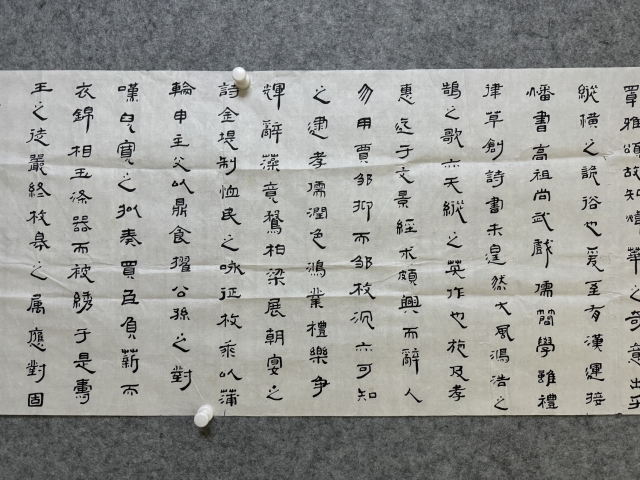 罩雅頌故知煒華之奇意出乎
縱橫之詭俗也爰至有漢運接
燔書高祖尚武戲儒簡學雖禮
律草創詩書未遑然大風鴻浩之
鵠之歌亦天縱之英作也施及孝
惠迄于文景經术頗興而辭人
勿用賈邹抑而邹枚沉亦可知
之逮孝儒潤色鴻業禮樂争
輝辭藻竟騖柏梁展朝宴之
詩金堤制恤民之咏征枚乘以蒲
輪申主父以鼎食擢公孫之對
嘆皃寬之拟奏買臣負薪而
衣錦相玉滌器而被綉于是壽
王之徒嚴終枚臯之属應對固